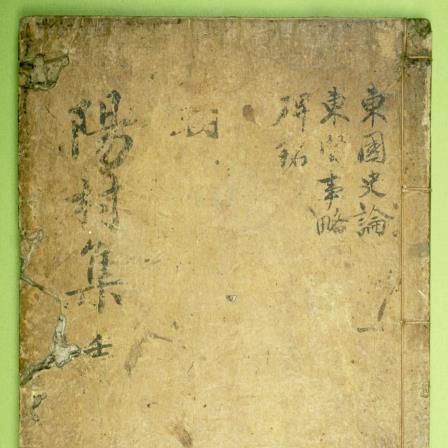 東國史論
東賢事略
碑銘
陽村集 壬